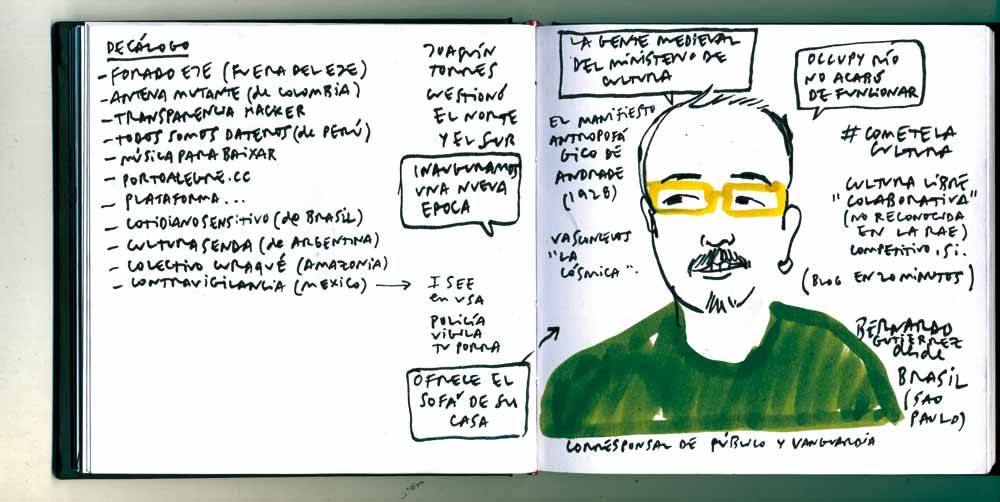 DECÁLOGO
- FORADO EJE (FUERA DEL EJE)
- ANTENA MUTANTE (de COLOMBIA)
- TRANSPARENCIA HACKER
- TODOS SOMOS DATEROS (de PERÚ)
- MÚSICA PARA BAIXAR
- PORTOALEGRE.CC
- PLATAFORMA...
- COTIDIANO SENSITIVO (de BRASIL)
- CULTURA SENDA (de ARGENTINA)
- COLECTIVO (AMAZONIA)
- CONTRAVIGILANCIA (MEXICO) →
JOAQUÍN
TORRES
CUESTIONÓ
EL NORTE
Y EL SUR
INAUGURAMOS
UNA NUEVA
EPOCA
I SEE
en USA
POLICÍA
VIGILA
TU PORRA
OFRECE EL
SOFÁ DE SU
CASA
LA GENTE MEDIEVAL
DEL MINISTERIO DE
CULTURA
EL MANIFIESTO
ANTROPOFÁ
GICO DE
ANDRADE
(1928)
VASCONCELOS
"LA
CÓSMICA".
OCCUPY RÍO
NO ACABÓ
DE FUNCIONAR
# COMETELA
CULTURA
CULTURA LIBRE
"COLABORATIVA"
(NO RECONOCIDA
EN LA RAE)
COMPETITIVO, SI.
(BLOG EN 20 MINUTOS)
BERNARDO
GUTIÉRREZ
desde
BRASIL
(SAO
PAULO)
CORRESPONSAL DE PÚBLICO Y VANGUARDIA